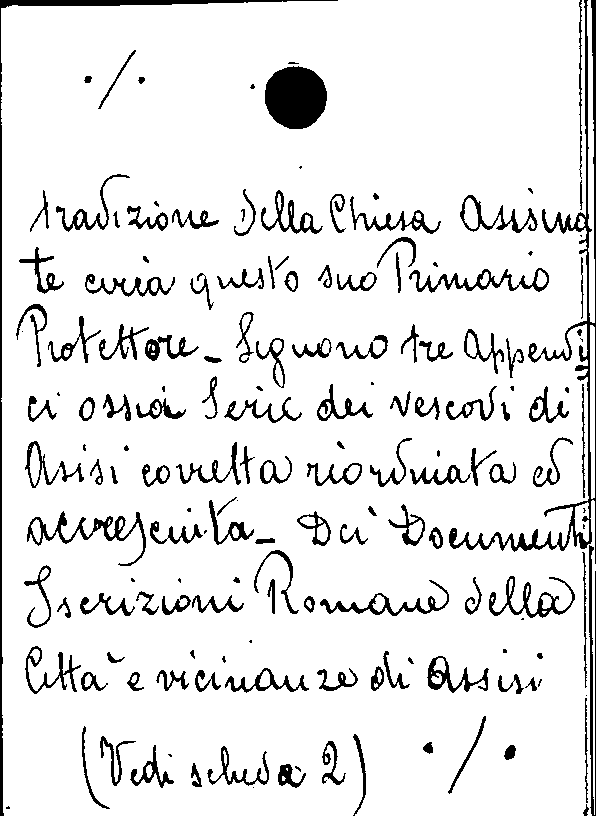 ./.
tradizione della Chiesa Asisina
te circa questo suo Primario
Protettore - Seguono tre Appendi=
ci ossia Serie dei vescovi di
Asisi corretta riordinata ed
accresciuta - Dei Documenti
Iscrizioni Romane della
Città e vicinanze di Assisi
(Vedi scheda 2) ./.